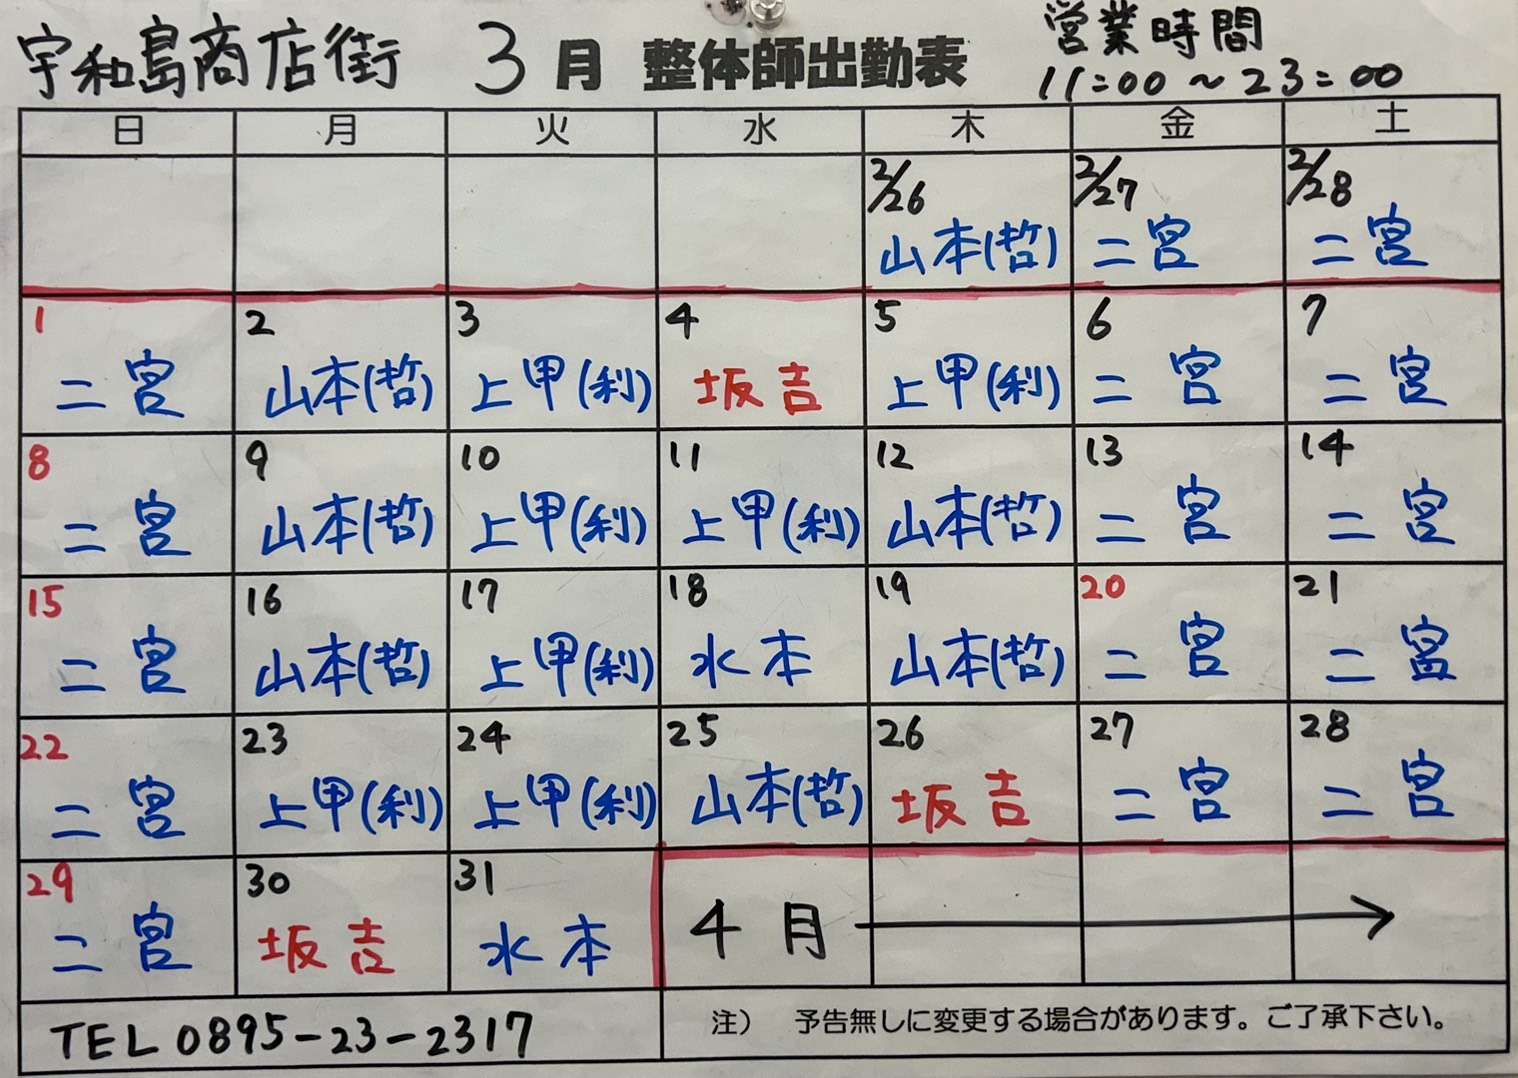 宇和島商店街 3月 整体師出勤表 営業時間
11:00～23:00
日 月 火 水 木 金 土
2/26 2/27 2/28
山本(哲) 二宮 二宮
1 2 3 4 5 6 7
二宮 山本(哲) 上甲(利) 坂吉 上甲(利) 二宮 二宮
8 9 10 11 12 13 14
二宮 山本(哲) 上甲(利) 上甲(利) 山本(哲) 二宮 二宮
15 16 17 18 19 20 21
二宮 山本(哲) 上甲(利) 水本 山本(哲) 二宮 二宮
22 23 24 25 26 27 28
二宮 上甲(利) 上甲(利) 山本(哲) 坂吉 二宮 二宮
29 30 31
二宮 坂吉 水本 4月
TEL 0895-23-2317 注） 予告無しに変更する場合があります。ご了承下さい。